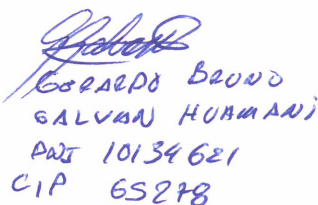 GERARDO BRUNO
GALVAN HUAMANI
DNI 10134621
CIP 65278